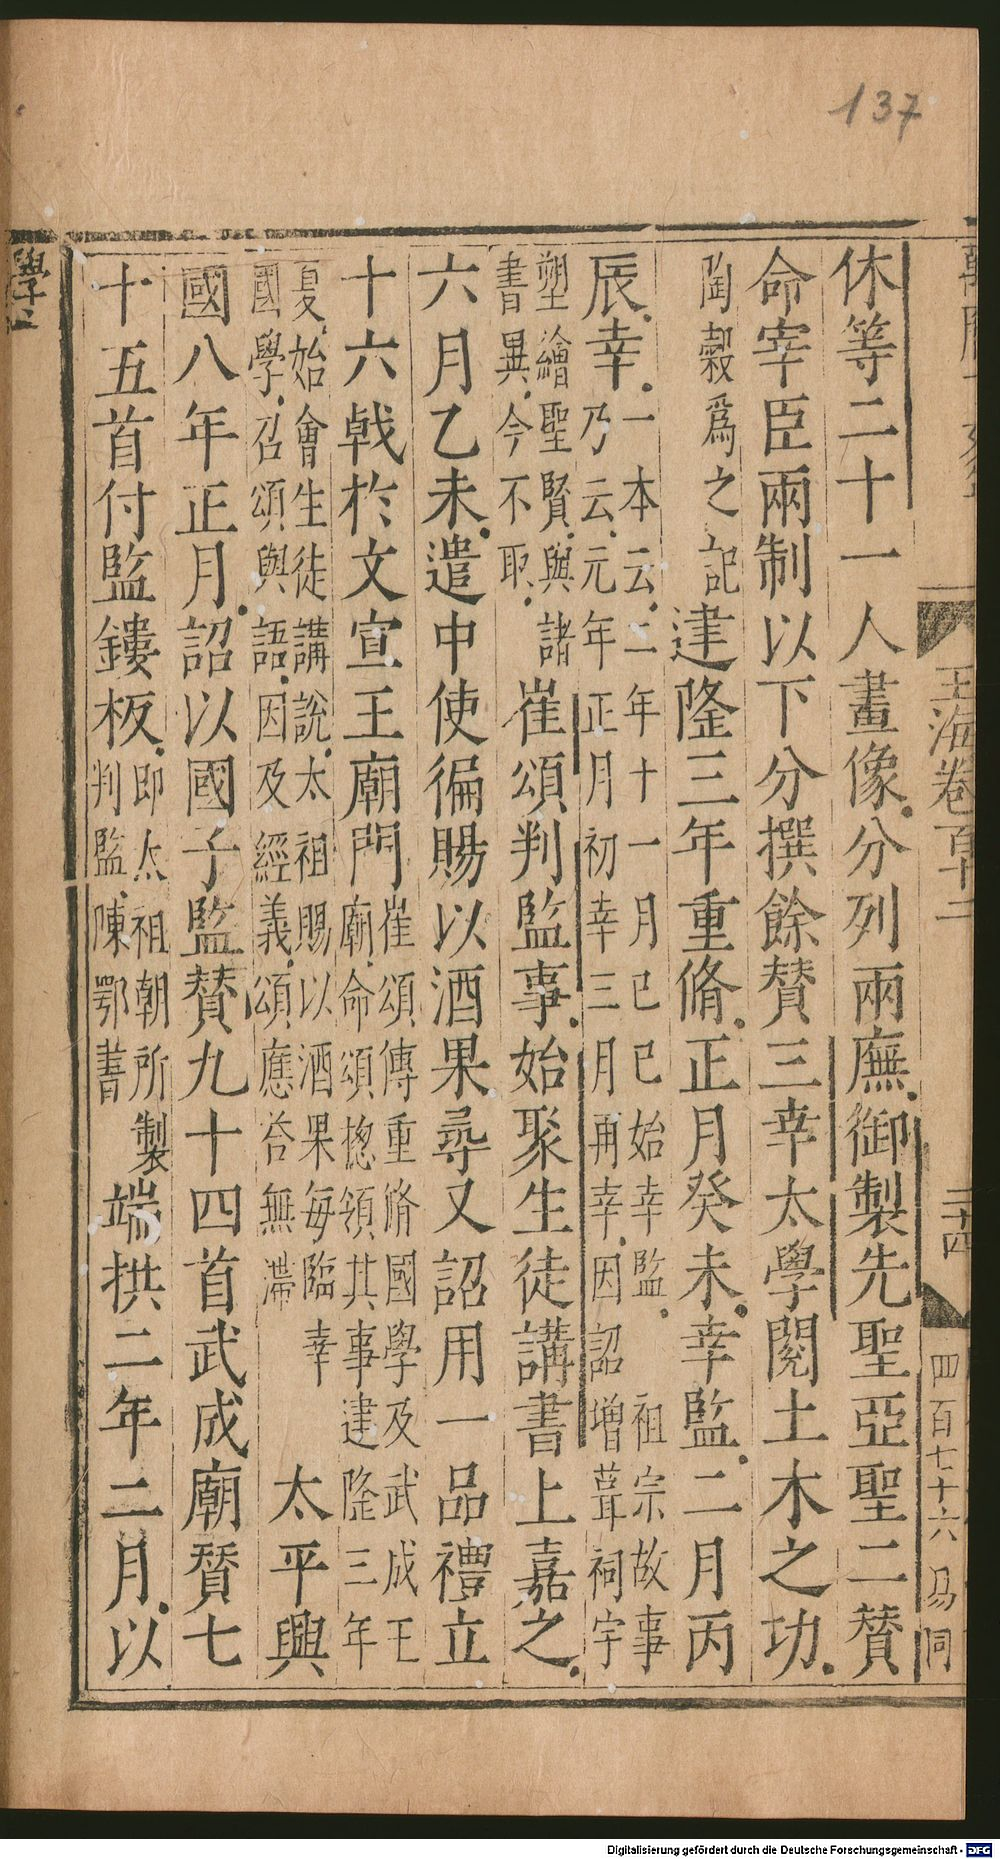 137
玉海卷百十二
二十四
四百七十六
休等二十一人畫像分列兩廡御製先聖亞聖二賛
命宰臣兩制以下分撰餘賛三幸太學閱土木之功
陶穀爲之記建隆三年重脩正月癸未幸監二月丙
辰幸
一本云二年十一月己巳始幸監祖宗故事
乃云元年正月初幸三月再幸因詔增葺祠宇
塑繪聖賢與諸
書異今不取
崔頌判監事始聚生徒講書上嘉之
六月乙未遣中使徧賜以酒果尋又詔用一品禮立
十六戟於文宣王廟門
崔頌傳重脩國學及武成王
廟命頌揔領其事建隆三年
夏始會生徒講說太祖賜以酒果每臨幸
國學召頌與語因及經義頌應荅無滯
太平興
國八年正月詔以國子監賛九十四首武成廟賛七
十五首付監鏤板
即太祖朝所製
判監陳鄂書
端拱二年二月以
學上
Digitalisierung gefördert durch die Deutsche Forschungsgemeinschaft - DFG